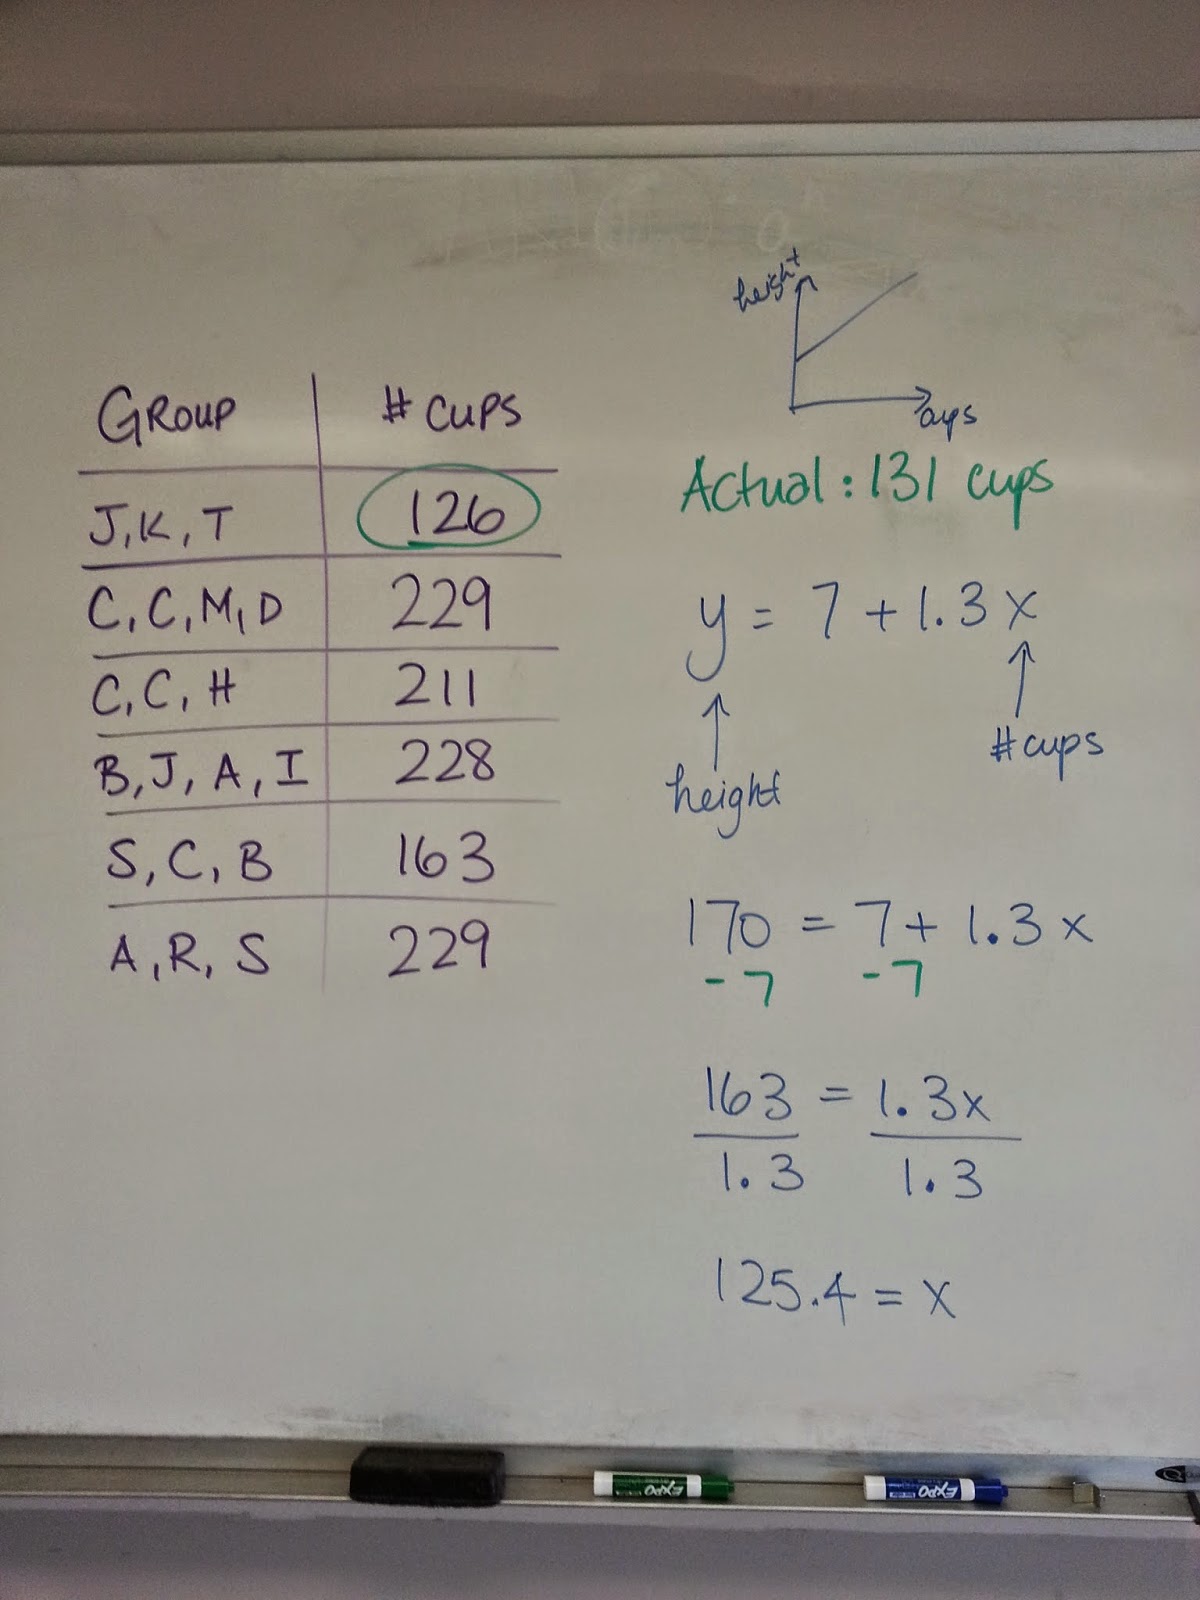 GROUP # CUPS
J, K, T 126
C, C, M, D 229
C, C, H 211
B, J, A, I 228
S, C, B 163
A, R, S 229
height
Actual: 131 cups
y = 7 + 1.3x
height
# cups
170 = 7 + 1.3x
-7 -7
163 = 1.3x
1.3 1.3
125.4 = x
EXPO
EXPO